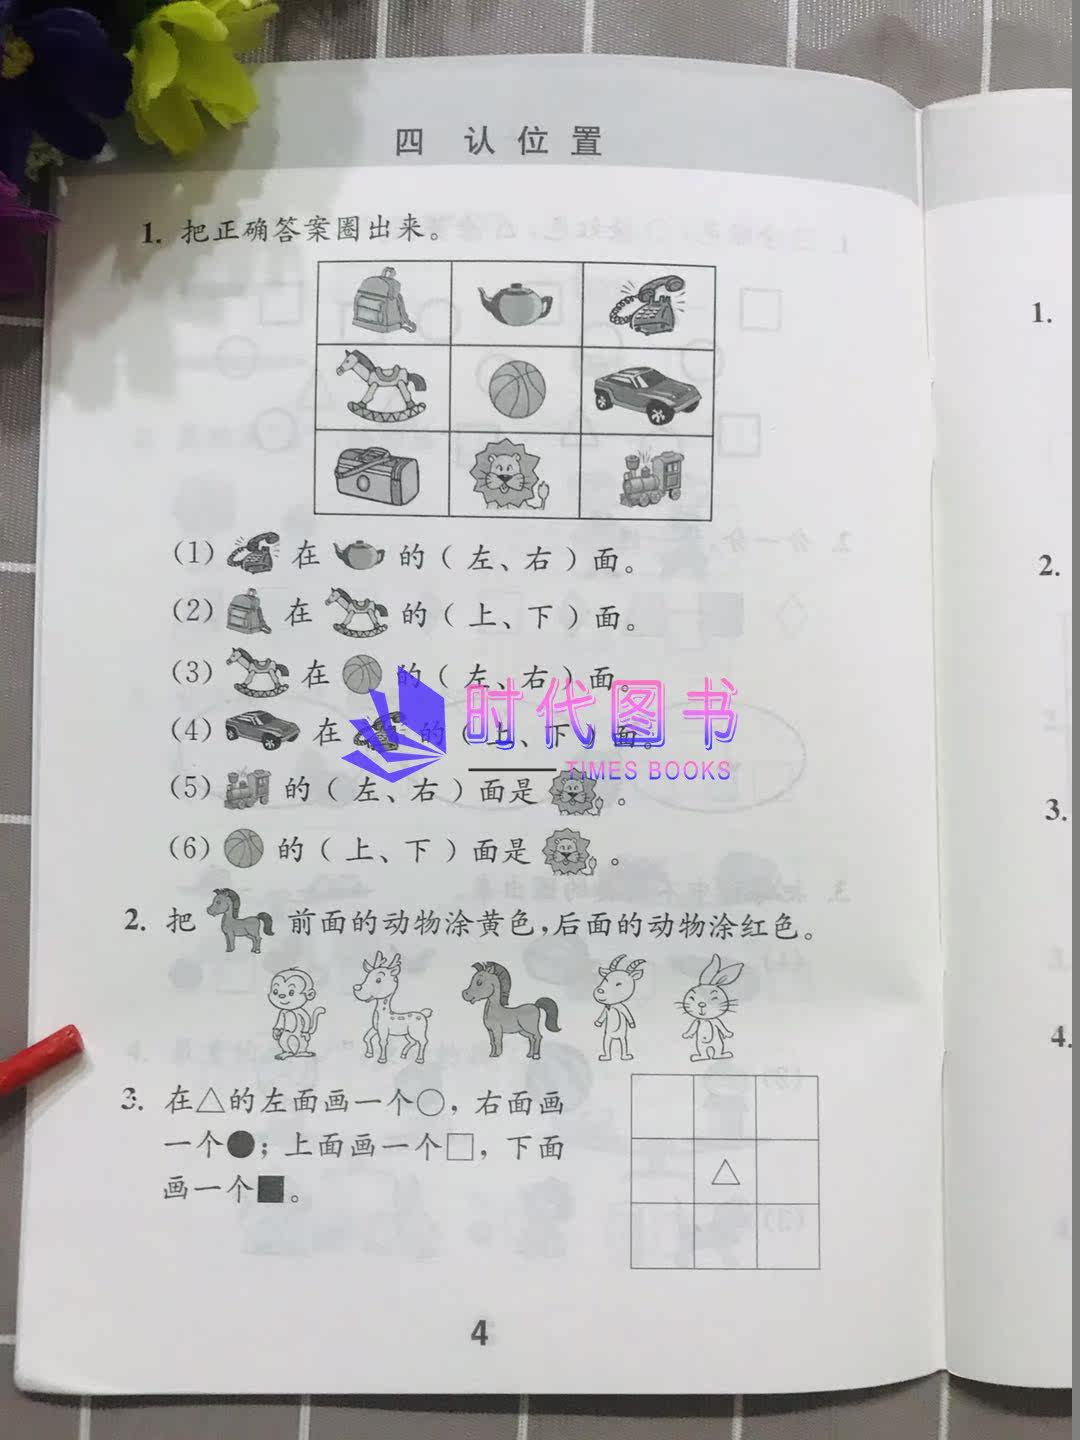 四 认位置
1. 把正确答案圈出来。
(1) 在 的(左、右)面。
(2) 在 的(上、下)面。
(3) 在 的(左、右)面。
(4) 在 的(上、下)面。
(5) 的(左、右)面是 。
(6) 的(上、下)面是 。
时代图书
TIMES BOOKS
2. 把 前面的动物涂黄色,后面的动物涂红色。
3. 在△的左面画一个○,右面画
一个●;上面画一个□,下面
画一个■。
4
1.
2.
3.
4.